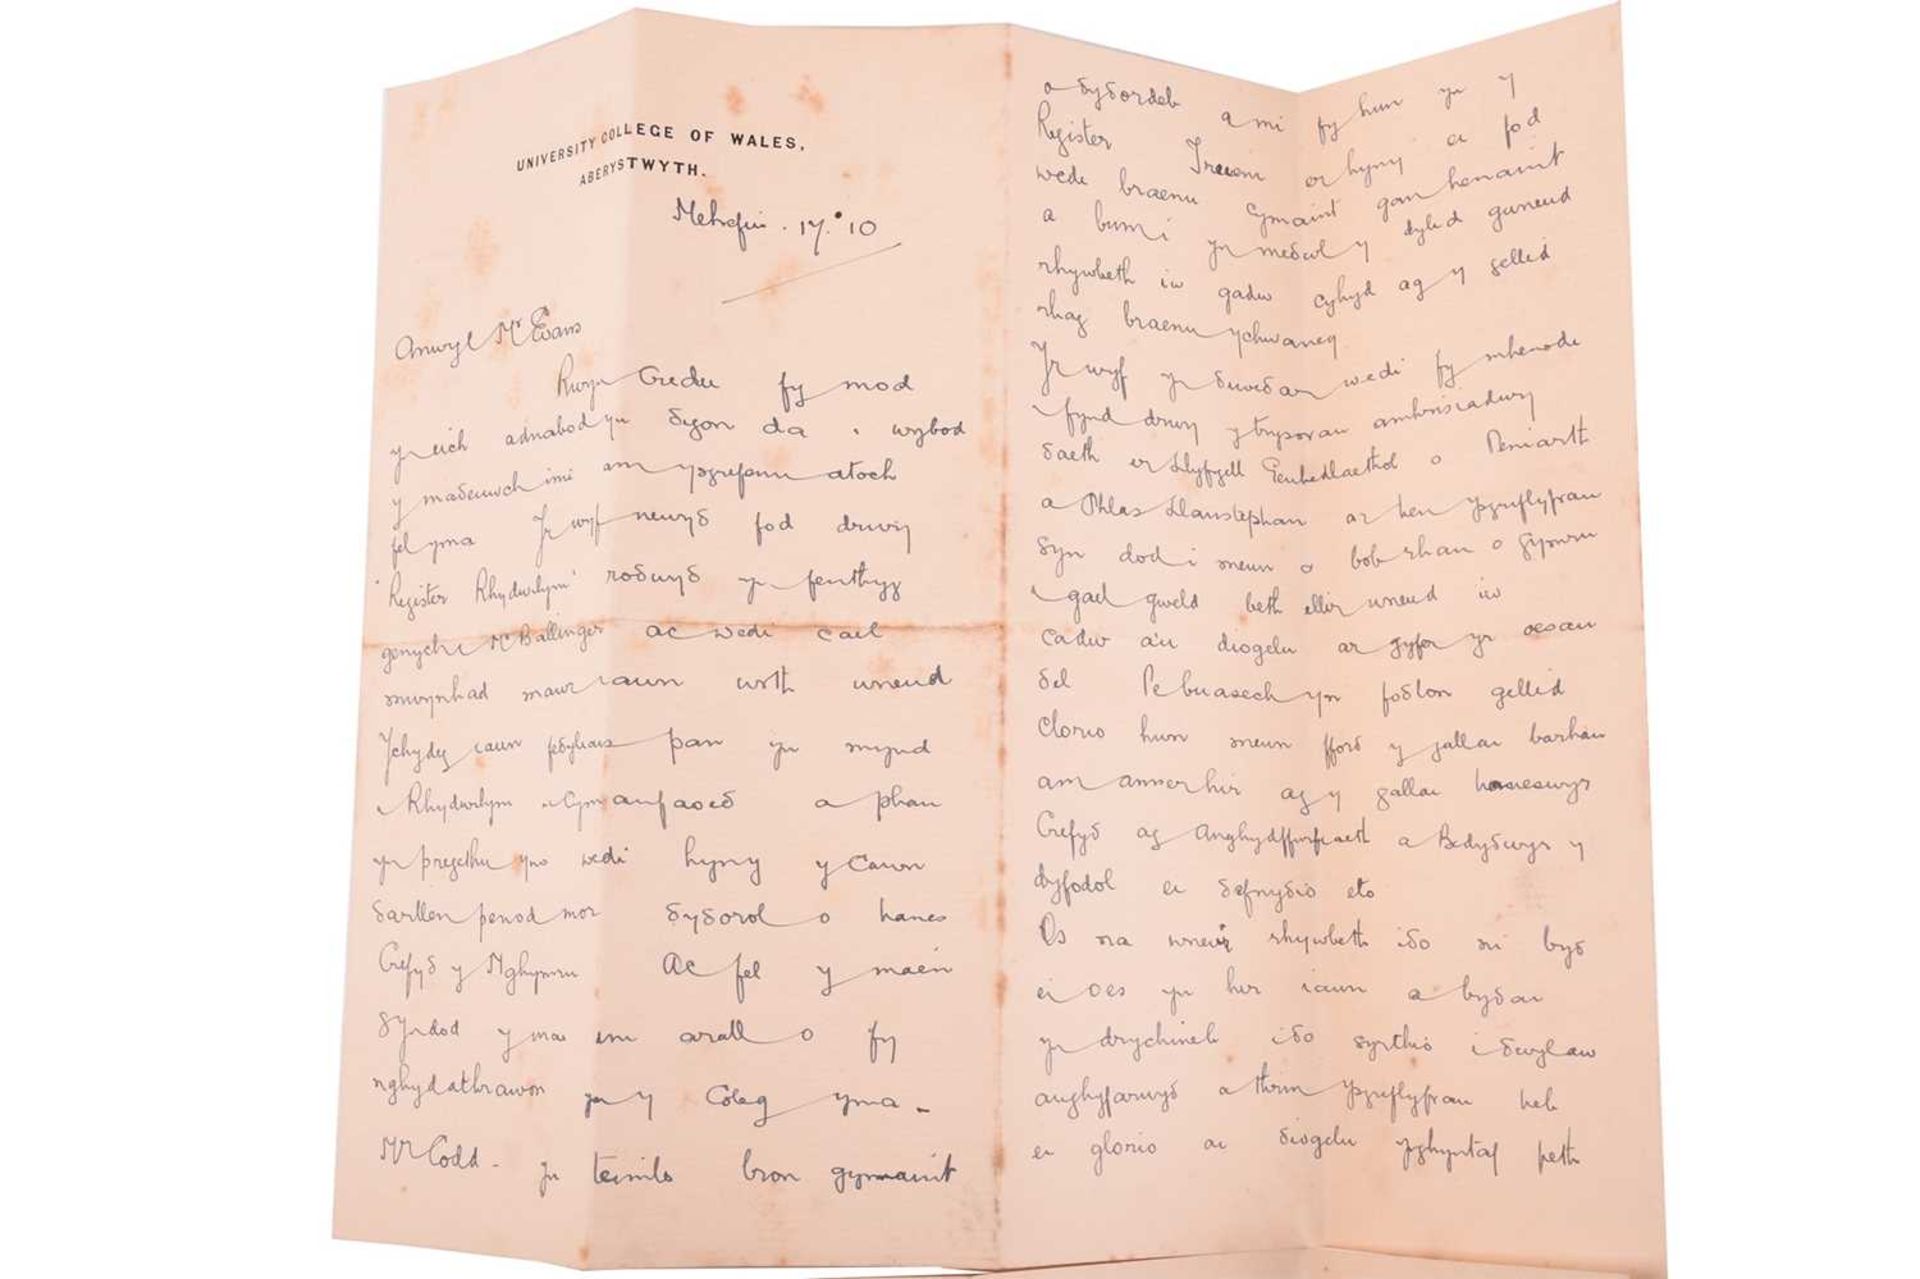 UNIVERSITY COLLEGE OF WALES,
ABERYSTWYTH.
Mehefin. 17. 10
Anwyl Mr Evans
Rwyn Credu fy mod
yn eich adnabod yn δigon da i wybod
y maδeuwch imi am ysgrifennu atoch
fel yma Yr wyf newyδ fod drwy
'Register Rhydwilym' roδwyδ yn fenthyg
genych i Mr Ballinger ac wedi cael
mwynhad mawr iawn wrth wneud
Ychydig iawn feδyliais pan yn mynd
i Rhydwilym i Gymanfaoeδ a phan
yn pregethu yno wedi hyny y Cawn
δarllen penod mor δyδorol o hanes
Crefyδ y Nghymru Ac fel y mae'n
δyndod y mae un arall o fy
nghydathrawon yn y Coleg yma -
Mr Codd - yn teimlo bron gymaint
o δyδordeb a mi fy hun yn y
Register Trueni er hyny ei fod
wedi braenu cymaint gan henaint
a bum i yn meδwl y dylid gwneud
rhywbeth iw gadw cyhyd ag y gellid
rhag braenu ychwaneg
Yr wyf yn δiweδar wedi fy mhenodi
i fynd drwy y trysorau amhrisiadwy
δaeth i'r Llyfrgell Genhedlaethol o Peniarth
a Phlas Llanstephan ar hen Ysgriflyfrau
δyn dod i mewn o bob rhan o Gymru
i gael gweld beth ellir wneud iw
cadw a'u diogelu ar gyfer yr oesau
δel Pe buasech yn foδlon gellid
Clorio hwn mewn fforδ y gallai barhau
am amser hir ag y gallai haneswyr
Crefyδ ag Anghydffurfiaeth a Bedyδwyr y
dyfodol ei δefnyδio eto
Os na wneir rhywbeth iδo ni byδ
ei oes yn hir iawn a byδai
yn drychineb iδo syrthio i δwylaw
anghyfarwyδ a thrin Ysgriflyfrau heb
ei glorio ai δiogelu ysghyntaf peth